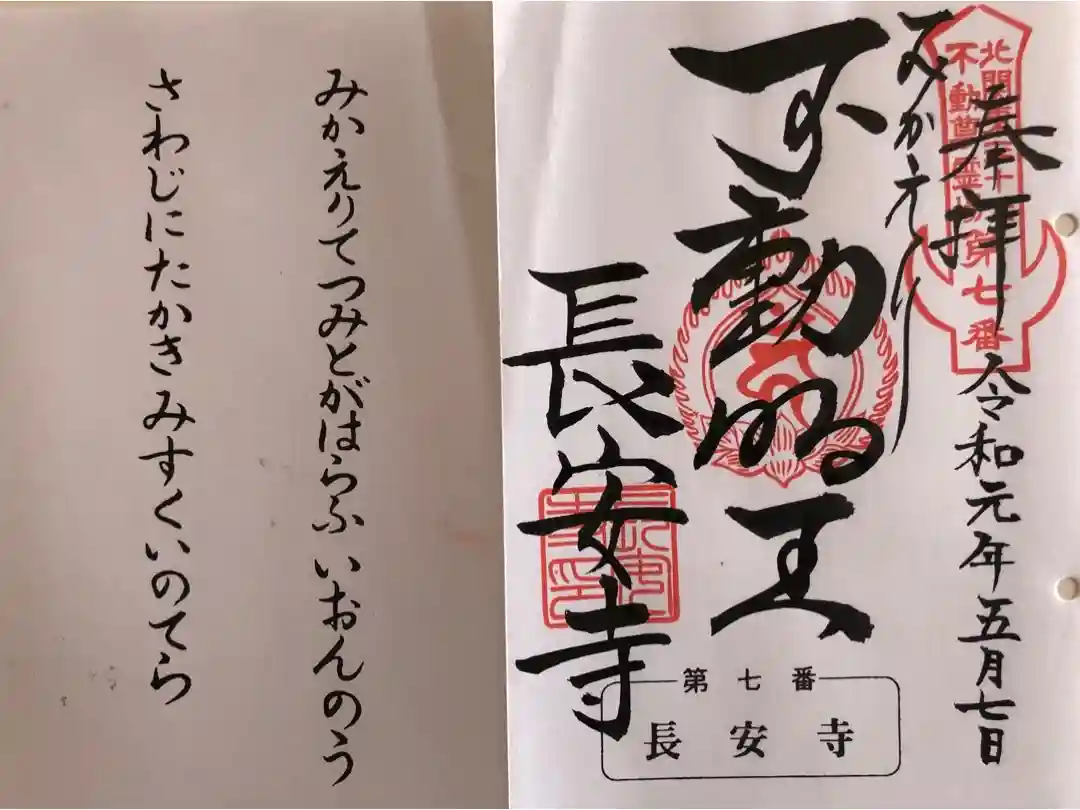 奉拝
令和元年五月七日
北関東三十六
不動尊霊場第七番
みかえり
不動明王
長安寺
第七番
長安寺
みかえりてつみとがはらふいおんのう
さわじにたかきみすくいのてら